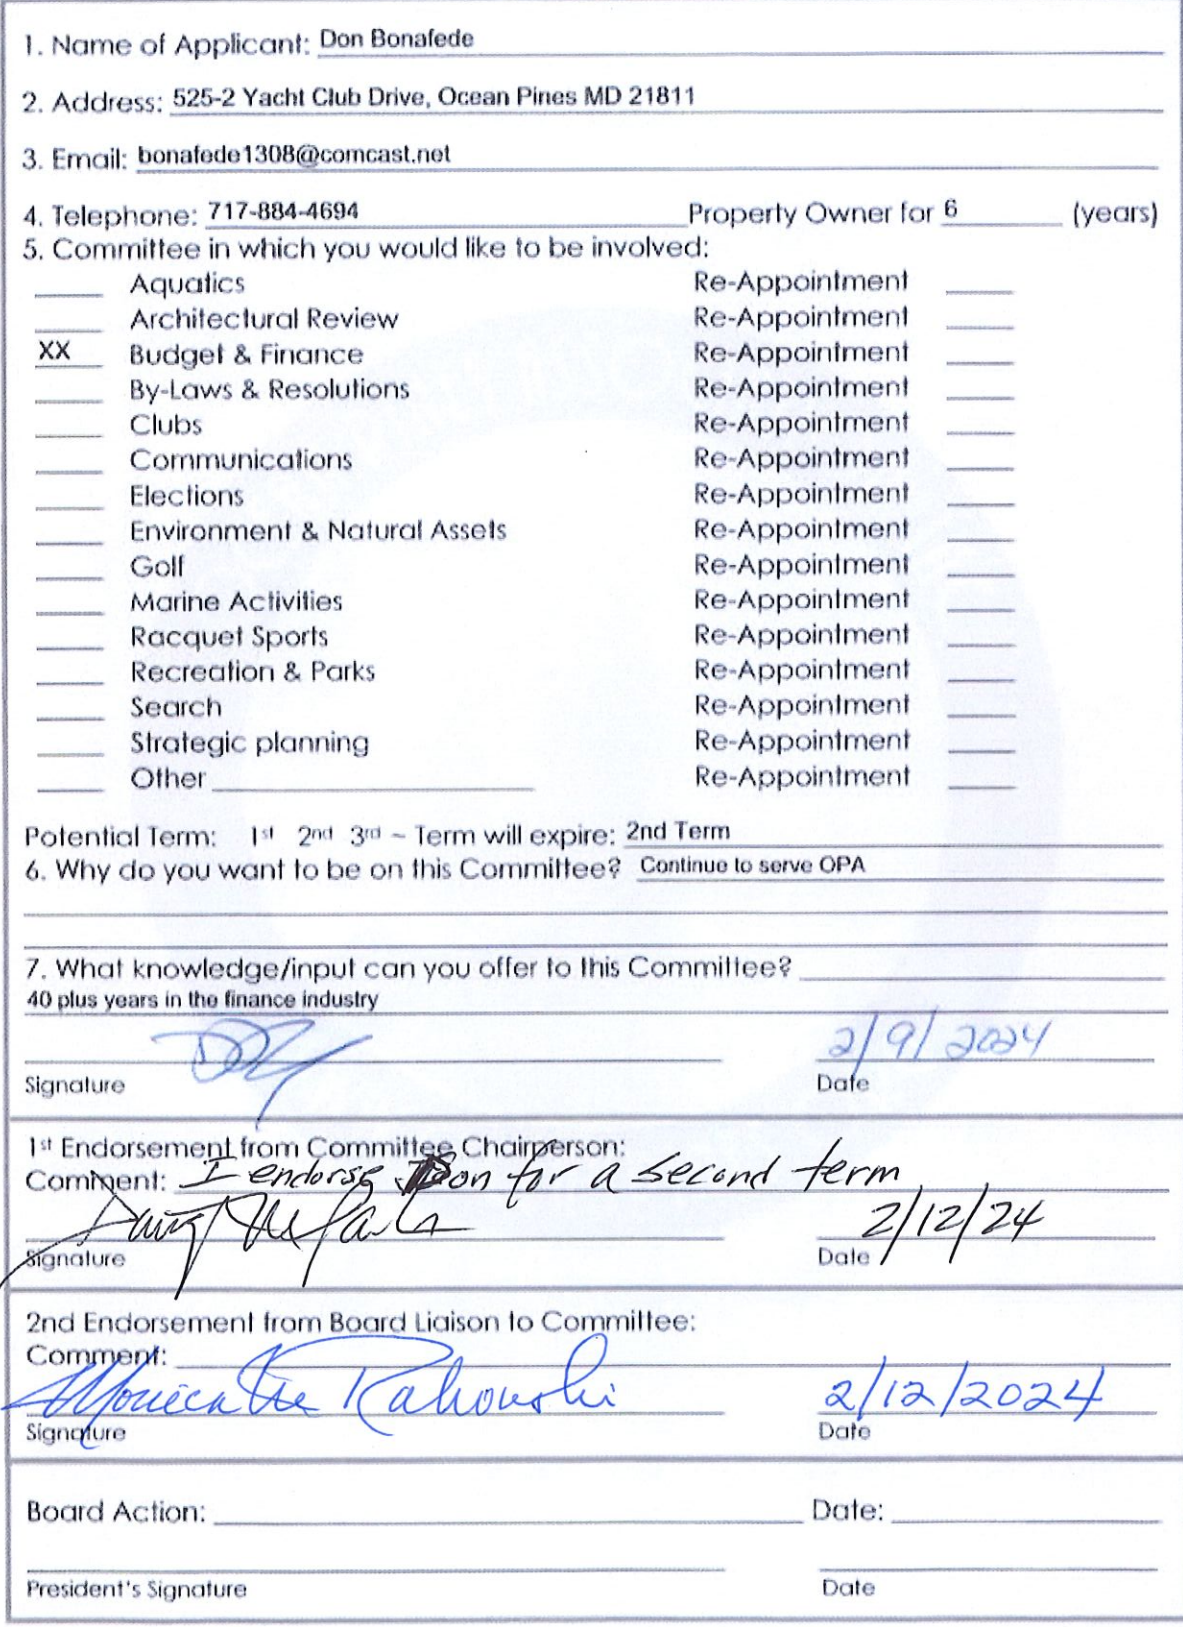 1. Name of Applicant: Don Bonafede
2. Address: 525-2 Yacht Club Drive, Ocean Pines MD 21811
3. Email: bonafede1308@comcast.net
4. Telephone: 717-884-4694 Property Owner for 6 (years)
5. Committee in which you would like to be involved:
Aquatics Re-Appointment
Architectural Review Re-Appointment
XX Budget & Finance Re-Appointment
By-Laws & Resolutions Re-Appointment
Clubs Re-Appointment
Communications Re-Appointment
Elections Re-Appointment
Environment & Natural Assets Re-Appointment
Golf Re-Appointment
Marine Activities Re-Appointment
Racquet Sports Re-Appointment
Recreation & Parks Re-Appointment
Search Re-Appointment
Strategic planning Re-Appointment
Other Re-Appointment
Potential Term: 1st 2nd 3rd ~ Term will expire: 2nd Term
6. Why do you want to be on this Committee? Continue to serve OPA
7. What knowledge/input can you offer to this Committee?
40 plus years in the finance industry
2/9/2024
Signature Date
1st Endorsement from Committee Chairperson:
Comment: I endorse Don for a second term
2/12/24
Signature Date
2nd Endorsement from Board Liaison to Committee:
Comment:
Monica Rakowski 2/12/2024
Signature Date
Board Action: Date:
President's Signature Date